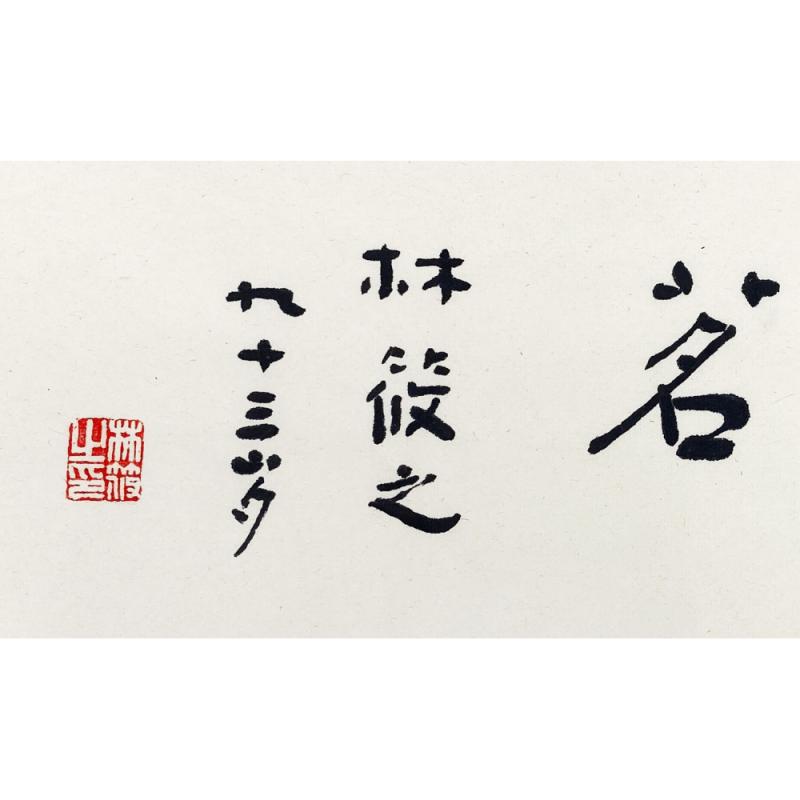 茗
林筱之
九十三岁
林筱之印